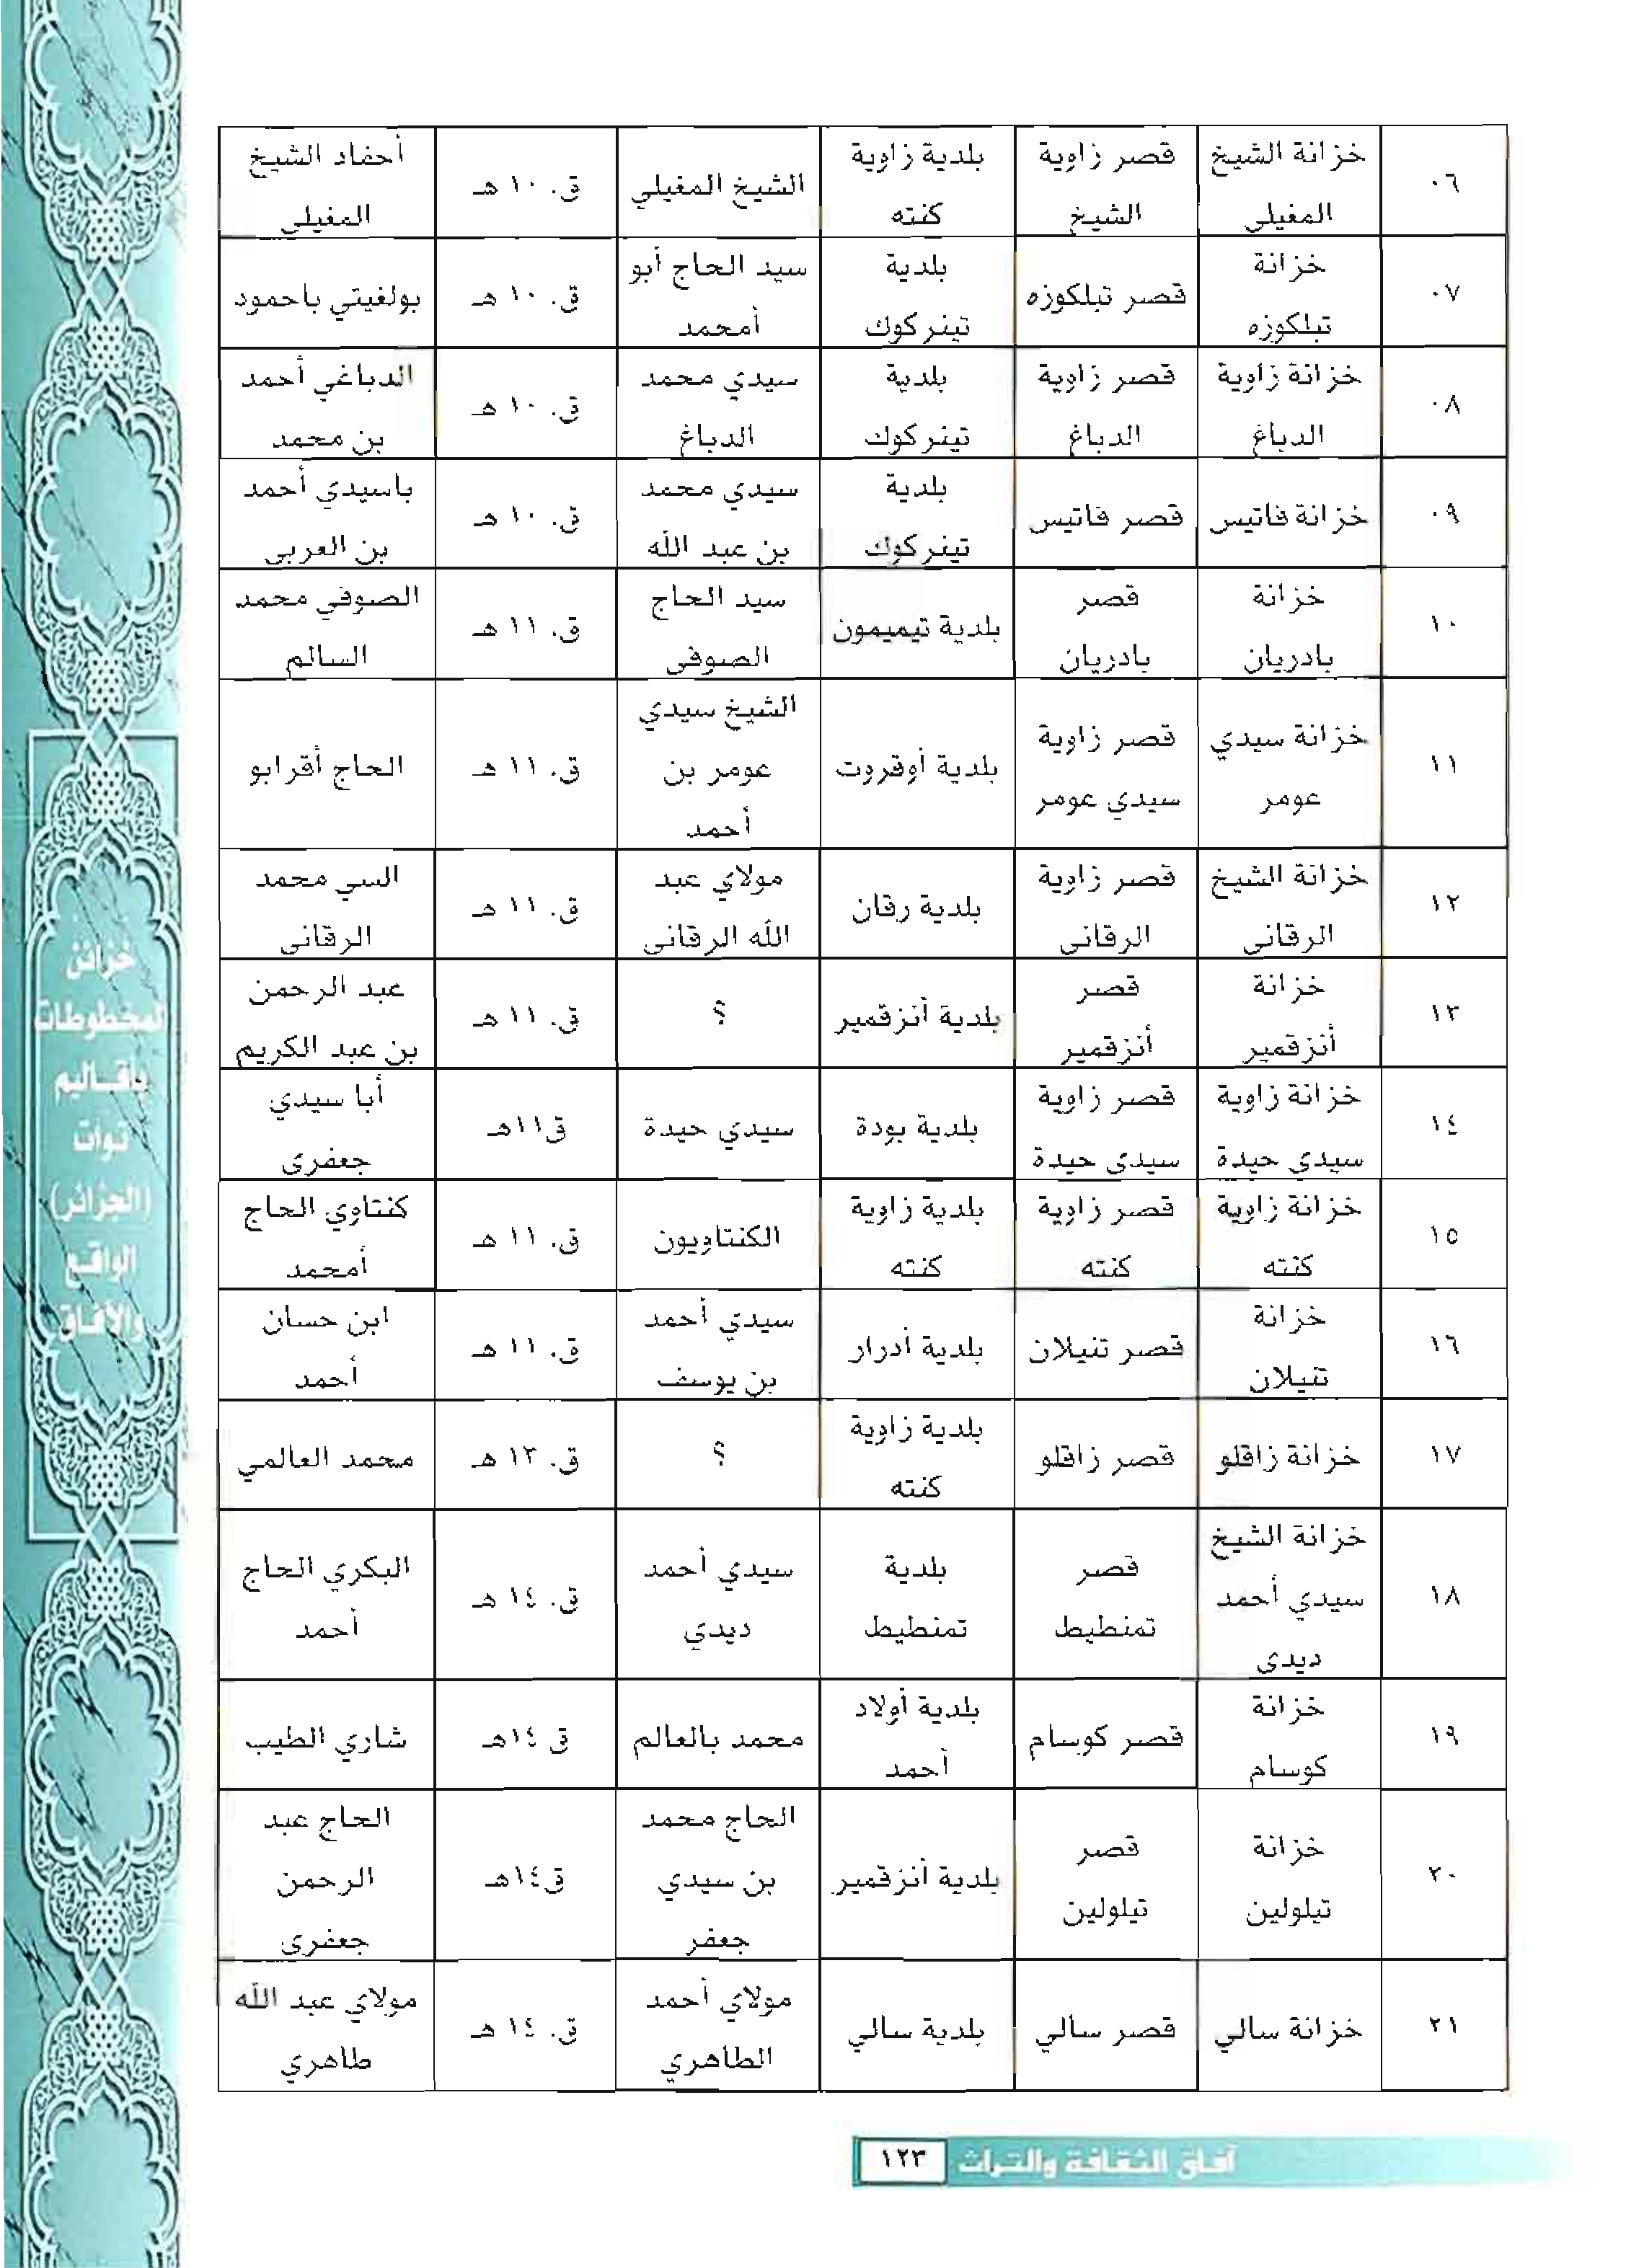 ٠٦ خزانة الشيخ المغيلي قصر زاوية الشيخ بلدية زاوية كنته الشيخ المغيلي ق. ١٠ هـ أحفاد الشيخ المغيلي
٠٧ خزانة تبلكوزه قصر تبلكوزه بلدية تينركوك سيد الحاج أبو أمحمد ق. ١٠ هـ بولغيتي باحمود
٠٨ خزانة زاوية الدباغ قصر زاوية الدباغ بلدية تينركوك سيدي محمد الدباغ ق. ١٠ هـ الدباغي أحمد بن محمد
٠٩ خزانة فاتيس قصر فاتيس بلدية تينركوك سيدي محمد بن عبد الله ق. ١٠ هـ باسيدي أحمد بن العربي
١٠ خزانة بادريان قصر بادريان بلدية تيميمون سيد الحاج الصوفي ق. ١١ هـ الصوفي محمد السالم
١١ خزانة سيدي عومر قصر زاوية سيدي عومر بلدية أوقروت الشيخ سيدي عومر بن أحمد ق. ١١ هـ الحاج أقرابو
١٢ خزانة الشيخ الرقاني قصر زاوية الرقاني بلدية رقان مولاي عبد الله الرقاني ق. ١١ هـ السي محمد الرقاني
١٣ خزانة أنزقمير قصر أنزقمير بلدية أنزقمير ؟ ق. ١١ هـ عبد الرحمن بن عبد الكريم
١٤ خزانة زاوية سيدي حيدة قصر زاوية سيدي حيدة بلدية بودة سيدي حيدة ق١١هـ أبا سيدي جعفري
١٥ خزانة زاوية كنته قصر زاوية كنته بلدية زاوية كنته الكنتاويون ق. ١١ هـ كنتاوي الحاج أمحمد
١٦ خزانة تنيلان قصر تنيلان بلدية أدرار سيدي أحمد بن يوسف ق. ١١ هـ ابن حسان أحمد
١٧ خزانة زاقلو قصر زاقلو بلدية زاوية كنته ؟ ق. ١٣ هـ محمد العالمي
١٨ خزانة الشيخ سيدي أحمد ديدي قصر تمنطيط بلدية تمنطيط سيدي أحمد ديدي ق. ١٤ هـ البكري الحاج أحمد
١٩ خزانة كوسام قصر كوسام بلدية أولاد أحمد محمد بالعالم ق ١٤هـ شاري الطيب
٢٠ خزانة تيلولين قصر تيلولين بلدية أنزقمير الحاج محمد بن سيدي جعفر ق١٤هـ الحاج عبد الرحمن جعفري
٢١ خزانة سالي قصر سالي بلدية سالي مولاي أحمد الطاهري ق. ١٤ هـ مولاي عبد الله طاهري
خزائن
المخطوطات
بأقاليم
توات
(الجزائر)
الواقع
والآفاق
آفاق الثقافة والتراث ١٢٣